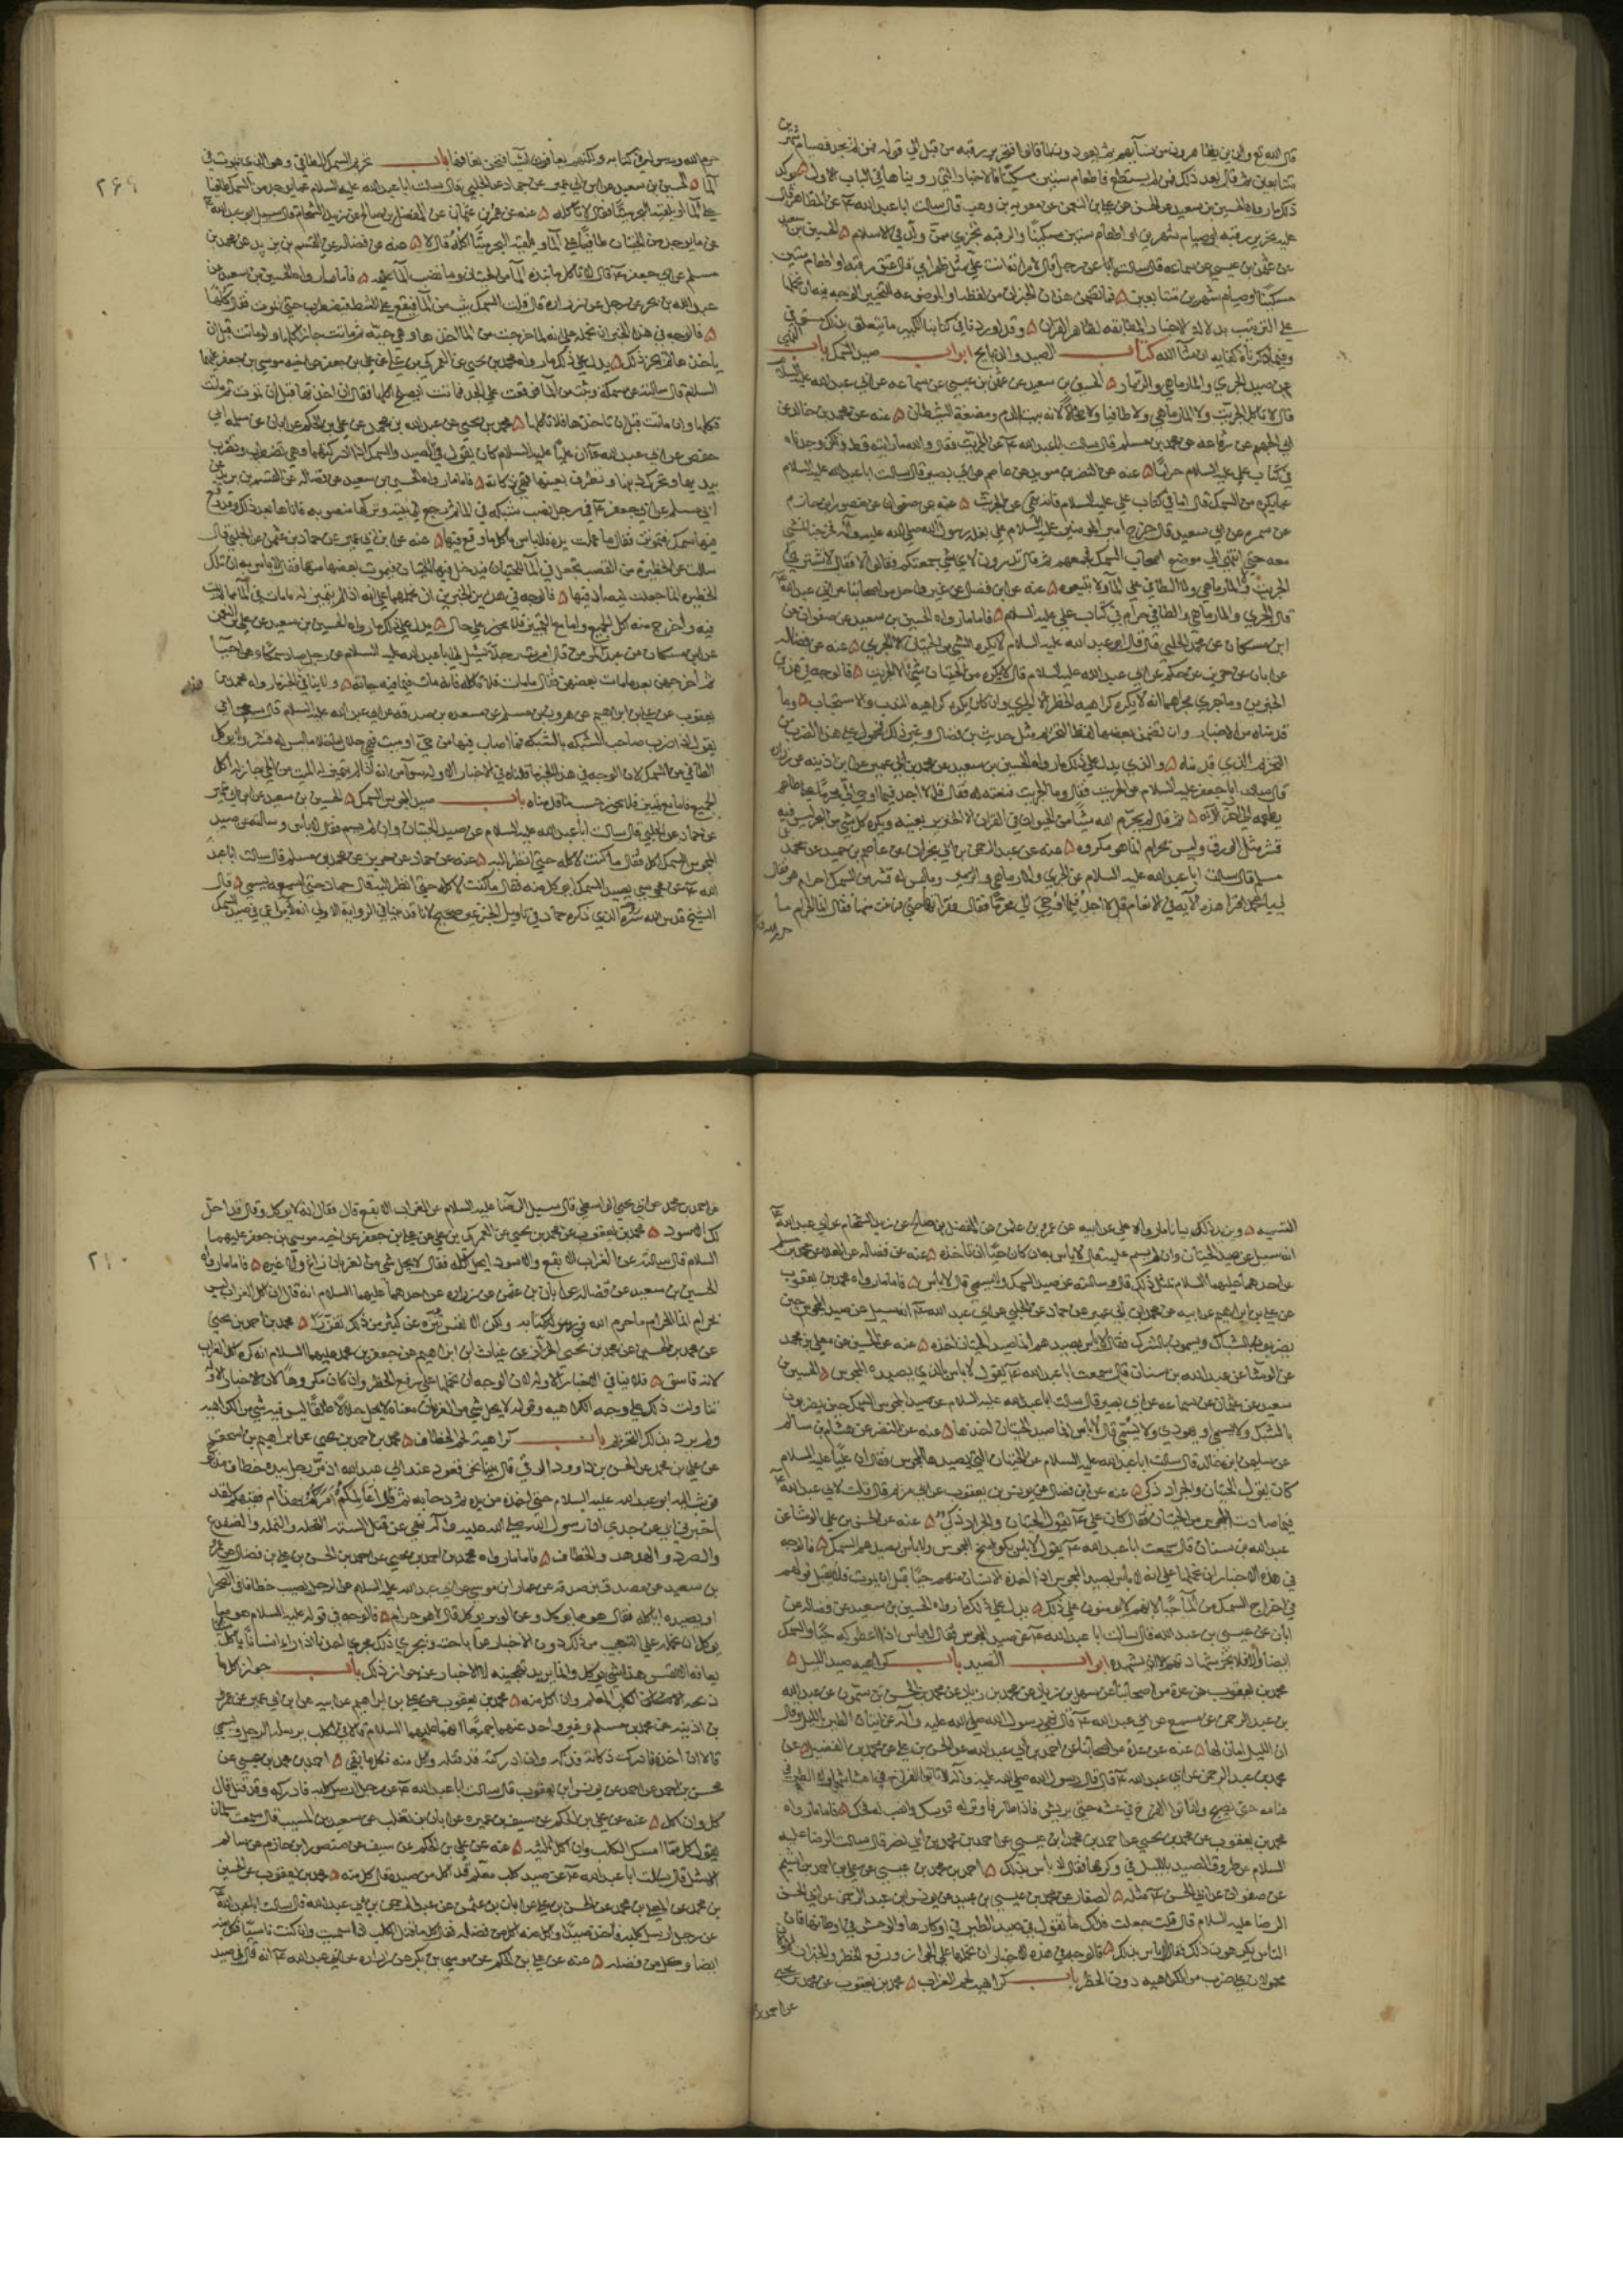 قال الله تع والذين يظاهرون من نسائهم ثم يعودون لما قالوا فتحرير رقبه من قبل الى قوله فمن لم يجد فصيام شهرين
متتابعين ثم قال بعد ذلك فمن لم يستطع فاطعام ستين مسكينا فالاخبار التي رويناها في الباب الاول
ذلك ما رواه الحسين بن سعيد عن الحسن عن علي بن النعمن عن معويه بن وهب قال سالت ابا عبد الله ع عن المظاهر قال
عليه تحرير رقبه او صيام شهرين او اطعام ستين مسكينا والرقبه تجزي ممن ولد في الاسلام الحسين بن سعيد
عن عثمن بن عيسى عن سماعه قال سالته عن رجل قال لامراته انت علي مثل ظهر امي قال عتق رقبه او اطعام ستين
مسكينا او صيام شهرين متتابعين
وفيما ذكرناه كفايه ان شا الله كتاب الصيد والذبايح ابواب صيد السمك باب النهي
عن صيد الجري والمارماهي والزمار الحسين بن سعيد عن عثمن بن عيسى عن سماعه عن ابي عبد الله عليه السلام
قال لا تاكل الجريث ولا المارماهي ولا طافيا ولا طحالا لانه بيت الدم ومضغة الشيطان عنه عن محمد بن خالد عن
ابي الجهم عن رفاعه عن محمد بن مسلم قال سالت ابا عبد الله ع عن الجريث فقال والله ما رايته قط ولكن وجدناه
في كتاب علي عليه السلام حراما عنه عن النضر بن سويد عن عاصم عن ابي بصير قال سالت ابا عبد الله عليه السلام
عما يكره من السمك قال اما في كتاب علي عليه السلام فانه نهى عن الجريث عنه عن صفوان عن منصور بن حازم
عن سمره عن ابي سعيد قال خرج امير المومنين عليه السلام على بغله رسول الله صلى الله عليه وآله فخرجنا نمشي
معه حتى انتهى الى موضع اصحاب السمك فجمعهم ثم قال تدرون لاي شي جمعتكم فقالوا لا فقال لا تشتروا
الجريث ولا المارماهي ولا الطافي على الماء ولا تبيعوه عنه عن ابن فضال عن غير واحد من اصحابنا عن ابي عبد الله ع
قال الجري والمارماهي والطافي حرام في كتاب علي عليه السلام فاما ما رواه الحسين بن سعيد عن صفوان عن
ابن مسكان عن محمد الحلبي قال قال ابو عبد الله عليه السلام لا يكره شي من الحيتان الا الجري عنه عن فضاله
عن ابان عن حريز عن حكم عن ابي عبد الله عليه السلام قال لا يكره من الحيتان شي الا الجريث فالوجه في هذين
الخبرين وما جرى مجراهما انه لا يكره كراهيه الحظر الا الجري وان كان يكره كراهيه الندب والاستحباب وما
قدمناه من الاخبار وان تضمن بعضها لفظ التحريم مثل حديث بن فضال وغير ذلك محمول على هذا الضرب من
التحريم الذي قدمناه والذي يدل على ذلك ما رواه الحسين بن سعيد عن محمد بن ابي عمير عن ابن اذينه عن زراره
قال سالت ابا جعفر عليه السلام عن الجريث فقال وما الجريث فنعته له فقال قل لا اجد فيما اوحي الي محرما على طاعم
يطعمه الى آخر الآيه ثم قال لم يحرم الله شيئا من الحيوان في القران الا الخنزير بعينه ويكره كل شي من البحر ليس فيه
قشر مثل الورق وليس بحرام انما هو مكروه عنه عن عبد الرحمن بن ابي نجران عن عاصم بن حميد عن محمد بن
مسلم قال سالت ابا عبد الله عليه السلام عن الجري والمارماهي والزمير وما ليس له قشر من السمك احرام هو فقال
لي يا محمد اقرا هذه الآيه في الانعام قل لا اجد فيما اوحي الي محرما فقال فقراتها حتى فرغت منها فقال انما الحرام ما
حرم الله ورسوله في كتابه ولكنهم يعافون اشيا فنحن نعافها باب تحريم السمك الطافي وهو الذي يموت في
الما الحسين بن سعيد عن ابن ابي عمير عن حماد عن الحلبي قال سالت ابا عبد الله عليه السلام عما يوجد من السمك طافيا
على الما او يلقيه البحر ميتا فقال لا تاكله عنه عن عمرو بن عثمان عن المفضل بن صالح عن زيد الشحام قال سيل ابو عبد الله ع
عن ما يوجد من الحيتان طافيا على الما او يلقيه البحر ميتا آكله قال لا عنه عن فضاله عن القسم بن بريد عن محمد بن
مسلم عن ابي جعفر ع قال لا تاكل ما نبذه الما من الحيتان وما نضب الما عنه فاما ما رواه الحسين بن سعيد عن
عبد الله بن بحر عن رجل عن زراره قال قلت السمك يثب من الما فيقع على الشط فيضطرب حتى يموت فقال كلها
فالوجه في هذا الخبر ان نحمله على انه لما خرجت من الما اخذها وهي حيه ثم ماتت جاز اكلها ولو ماتت قبل ان
ياخذها لم يجز ذلك يدل على ذلك ما رواه محمد بن يحيى عن العمركي بن علي عن علي بن جعفر عن اخيه موسى بن جعفر عليهما
السلام قال سالته عن سمكه وثبت من الما فوقعت على الجد فماتت ايصلح اكلها فقال ان اخذتها قبل ان تموت ثم ماتت
فكلها وان ماتت قبل ان تاخذها فلا تاكلها محمد بن يحيى عن عبد الله بن محمد عن علي بن الحكم عن ابان عن سلمه ابي
حفص عن ابي عبد الله ع ان عليا عليه السلام كان يقول في الصيد والسمك اذا ادركتها وهي تضطرب وتضرب
بيديها وتحرك ذنبها وتطرف بعينها فهي ذكاته فاما ما رواه الحسين بن سعيد عن فضاله عن القسم بن بريد عن
سالت عن الحظيره من القصب تجعل في الما للحيتان فيدخل فيها الحيتان فيموت بعضها فيها فقال لا باس به ان تلك
الحظيره انما جعلت ليصاد فيها فالوجه في هذين الخبرين ان نحملهما على انه اذا لم يتميز له ما مات في الما مما لم يمت
فيه واخرج منه اكل الجميع واما مع التميز فلا يجوز على حال يدل على ذلك ما رواه الحسين بن سعيد عن علي بن النعمن
يعقوب عن علي بن ابراهيم عن هرون بن مسلم عن مسعده بن صدقه عن ابي عبد الله عليه السلام قال سمعت ابي
يقول اذا ضرب صاحب الشبكه بالشبكه فما اصاب فيها من حي او ميت فهو حلال ما خلا ما ليس له قشر ولا يوكل
الطافي من السمك
الجميع فاما مع تميزه فلا يجوز حسب ما قدمناه باب صيد المجوس السمك الحسين بن سعيد عن ابن ابي عمير
عن حماد عن الحلبي قال سالت ابا عبد الله عليه السلام عن صيد الحيتان وان لم يسم فقال لا باس وسالته عن صيد
المجوس السمك آكله فقال ما كنت لآكله حتى انظر اليه عنه عن حماد عن حريز عن محمد بن مسلم قال سالت ابا عبد
الله ع عن مجوسي يصيد السمك ايوكل منه فقال ما كنت لآكله حتى انظر اليه قال حماد حتى اسمعه يسمي قال
الشيخ قدس الله سره
٢٦٩
انه سيل عن صيد الحيتان وان لم يسم عليه فقال لا باس به ان كان حيا ان تاخذه عنه عن فضاله عن العلا عن محمد بن مسلم
عن احدهما عليهما السلام مثل ذلك قال وسالته عن صيد السمك ولا يسمي قال لا باس فاما ما رواه محمد بن يعقوب
عن علي بن ابراهيم عن ابيه عن محمد بن ابي عمير عن حماد عن الحلبي عن ابي عبد الله ع انه سيل عن صيد المجوس حين
يضربون بالشباك ويسمون بالشرك فقال لا باس بصيدهم انما صيد الحيتان اخذه عنه عن الحسين عن معلى بن محمد
عن الوشا عن عبد الله بن سنان قال سمعت ابا عبد الله ع يقول لا باس بالسمك الذي يصيده المجوس الحسين بن
سعيد عن عثمان عن سماعه عن ابي بصير قال سالت ابا عبد الله عليه السلام عن صيد المجوس السمك حين يضربون
بالشبك ولا يسمي او يهودي ولا يسمي قال لا باس انما صيد الحيتان اخذها عنه عن النضر عن هشام بن سالم
عن سليمن بن خالد قال سالت ابا عبد الله عليه السلام عن الحيتان التي يصيدها المجوس فقال ان عليا عليه السلام
كان يقول الحيتان والجراد ذكي عنه عن ابن فضال عن يونس بن يعقوب عن ابي مريم قال قلت لابي عبد الله ع
فيما صادت المجوس من الحيتان فقال كان علي ع يقول الحيتان والجراد ذكي عنه عن الحسن بن علي الوشا عن
عبد الله بن سنان قال سمعت ابا عبد الله ع يقول لا باس بكواميخ المجوس ولا باس بصيدهم السمك فالوجه
في هذه الاخبار ان نحملها على انه لا باس بصيد المجوس اذا اخذه الانسان منهم حيا قبل ان يموت فلا يقبل قولهم
في اخراج السمك من الما حيا لانهم لا يومنون على ذلك يدل على ذلك ما رواه الحسين بن سعيد عن فضاله عن
ابان عن عيسى بن عبد الله قال سالت ابا عبد الله ع عن صيد المجوس فقال لا باس اذا اعطوكه حيا والسمك
ايضا والا فلا تجز شهادتهم الا ان تشهده ابواب الصيد باب كراهيه صيد الليل
محمد بن يعقوب عن عدة من اصحابنا عن سهل بن زياد عن محمد بن الحسن بن شمون عن عبد الله
بن عبد الرحمن عن مسمع عن ابي عبد الله ع قال نهى رسول الله صلى الله عليه وآله عن اتيان الطير بالليل وقال
ان الليل امان لها عنه عن عدة من اصحابنا عن احمد بن ابي عبد الله عن الحسن بن علي عن محمد بن الفضيل عن
محمد بن عبد الرحمن عن ابي عبد الله ع قال قال رسول الله صلى الله عليه وآله لا تاتوا الفراخ في اعشاشها ولا الطير في
منامه حتى يصبح ولا تاتوا الفرخ في عشه حتى يريش فاذا طار فاوتر له قوسك وانصب له فخك فاما ما رواه
محمد بن يعقوب عن محمد بن يحيى عن احمد بن محمد بن عيسى عن احمد بن محمد بن ابي نصر قال سالت الرضا عليه
السلام عن طروق الصيد بالليل في وكرها فقال لا باس بذلك احمد بن محمد بن عيسى عن علي بن احمد بن اشيم
عن صفوان عن ابي الحسن ع مثله الصفار عن محمد بن عيسى بن عبيد عن يونس بن عبد الرحمن عن ابي الحسن
الرضا عليه السلام قال قلت جعلت فداك ما تقول في صيد الطير في اوكارها والوحش في اوطانها فان
الناس يكرهون ذلك فقال لا باس بذلك فالوجه في هذه الاخبار ان نحملها على الجواز ورفع الحظر والخبران الاولان
محمولان على ضرب من الكراهيه دون الحظر باب كراهيه لحم الغراب محمد بن يعقوب عن محمد بن يحيى
عن احمد بن
بن محمد عن ابي يحيى الواسطي قال سيل الرضا عليه السلام عن الغراب الابقع قال فقال انه لا يوكل وقال قد احل
لك الاسود محمد بن يعقوب عن محمد بن يحيى عن العمركي بن علي عن علي بن جعفر عن اخيه موسى بن جعفر عليهما
السلام قال سالته عن الغراب الابقع والاسود ايحل اكله فقال لا يحل شي من الغربان زاغ ولا غيره فاما ما رواه
الحسين بن سعيد عن فضاله عن ابان بن عثمن عن زراره عن احدهما عليهما السلام انه قال ان اكل الغراب ليس
بحرام انما الحرام ما حرم الله في كتابه ولكن الانفس تتنزه عن كثير من ذلك تقززا محمد بن احمد بن يحيى
عن محمد بن الحسين عن محمد بن يحيى الخزاز عن غياث بن ابراهيم عن جعفر بن محمد عليهما السلام انه كره اكل الغراب
لانه فاسق فلا ينافي الاخبار الاوله لان الوجه ان نحملها على رفع الحظر وان كان مكروها لان الاخبار الاوله
تناولت ذلك على وجه الكراهيه وقوله لا يحل شي من الغربان معناه لا يحل حلالا طلقا ليس فيه شي من الكراهيه
ولم يرد بذلك التحريم باب كراهية لحم الخطاف محمد بن احمد بن يحيى عن ابراهيم بن اسحق
عن علي بن محمد عن الحسن بن داوود الرقي قال بينا نحن قعود عند ابي عبد الله اذ مر رجل بيده خطاف مذبوح
فوثب اليه ابو عبد الله عليه السلام حتى اخذه من يده ثم دحا به ثم قال اعالمكم امركم بهذا ام فقيهكم لقد
اخبرني ابي عن جدي ان رسول الله صلى الله عليه وآله نهى عن قتل السته النحله والنمله والضفدع
والصرد والهدهد والخطاف فاما ما رواه محمد بن احمد بن يحيى عن احمد بن الحسن بن علي بن فضال عن عمرو
بن سعيد عن مصدق بن صدقه عن عمار بن موسى عن ابي عبد الله عليه السلام عن الرجل يصيب خطافا في الصحرا
او يصيده اياكله فقال هو مما يوكل وعن الوبر يوكل قال لا هو حرام فالوجه في قوله عليه السلام هو مما
يعافه الانفس هذا شي يوكل وانما يريد تهجينه لا الاخبار عن جواز ذلك باب جواز اكل ما
ذبحه الكلب المعلم وان اكل منه محمد بن يعقوب عن علي بن ابراهيم عن ابيه عن ابن ابي عمير عن عمر
بن اذينه عن محمد بن مسلم وغير واحد عنهما جميعا انهما عليهما السلام قالا في الكلب يرسله الرجل ويسمي
قالا ان اخذه فادركت ذكاته فذكه وان ادركته قد قتله واكل منه فكل ما بقي احمد بن محمد بن عيسى عن
محسن بن احمد عن يونس بن يعقوب قال سالت ابا عبد الله ع عن رجل ارسل كلبه فادركه وقد قتل قال
كل وان اكل عنه عن علي بن الحكم عن سيف بن عميره عن ابان بن تغلب عن سعيد بن المسيب قال سمعت سلمان
يقول كل مما امسك الكلب وان اكل ثلثيه عنه عن علي بن الحكم عن سيف عن منصور بن حازم عن سالم
الاشل قال سالت ابا عبد الله ع عن صيد كلب معلم قد اكل من صيده قال كل منه محمد بن يعقوب عن الحسين
بن محمد عن المعلى بن محمد عن الحسن بن علي عن ابان بن عثمن عن عبد الرحمن بن ابي عبد الله قال سالت ابا عبد الله ع
عن رجل ارسل كلبه فاخذ صيدا واكل منه آكل من فضله فقال كل ما قتل الكلب اذا سميت وان كنت ناسيا فكل منه
ايضا وكل من فضله عنه عن علي بن الحكم عن موسى بن بكر عن زراره عن ابي عبد الله ع انه قال في صيد